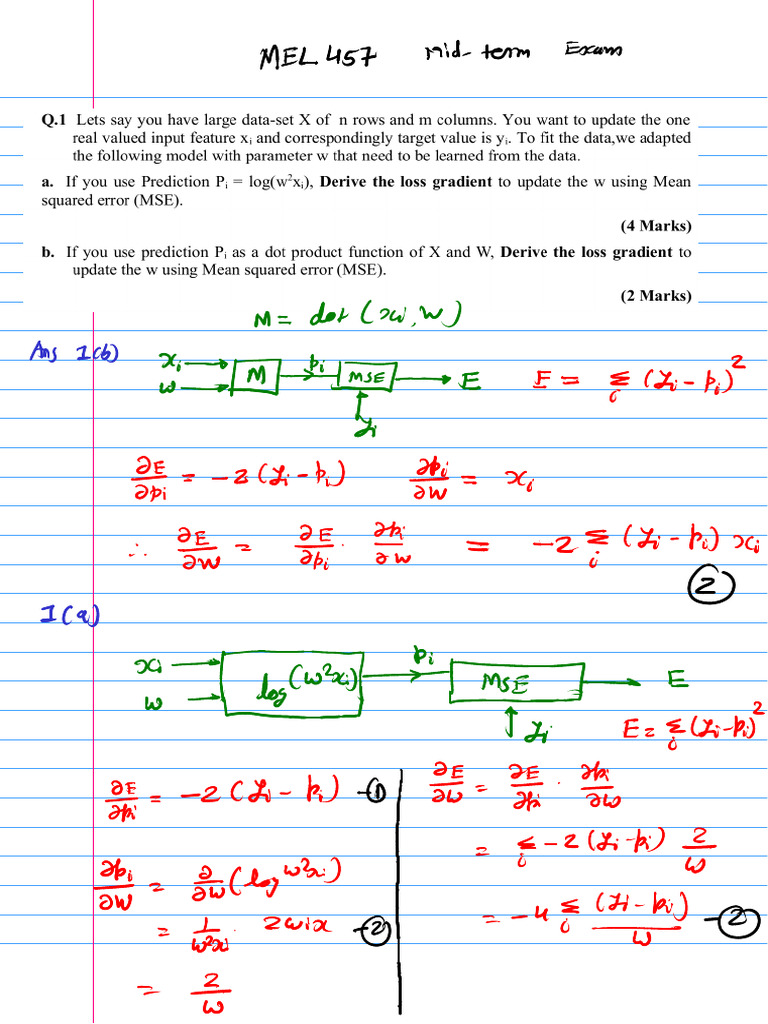 MEL457 mid-term Exam
Q.1 Lets say you have large data-set X of n rows and m columns. You want to update the one
real valued input feature xᵢ and correspondingly target value is yᵢ. To fit the data,we adapted
the following model with parameter w that need to be learned from the data.
a. If you use Prediction Pᵢ = log(w²xᵢ), Derive the loss gradient to update the w using Mean
squared error (MSE).
(4 Marks)
b. If you use prediction Pᵢ as a dot product function of X and W, Derive the loss gradient to
update the w using Mean squared error (MSE).
(2 Marks)
M = dot (xi, W)
Ans 1(b)
xi w M pi MSE E yi
E = Σi (yi - pi)²
∂E/∂pi = -2 (yi - pi) ∂pi/∂w = xi
∴ ∂E/∂w = ∂E/∂pi · ∂pi/∂w = -2 Σi (yi - pi) xi
2
1(a)
xi w log(w²xi) pi MSE E yi
E = Σi (yi - pi)²
∂E/∂pi = -2 (yi - pi) -1
∂pi/∂w = ∂/∂w (log w²xi)
= 1/w²xi · 2wix -2
= 2/w
∂E/∂w = ∂E/∂pi · ∂pi/∂w
= Σi -2 (yi - pi) 2/w
= -4 Σi (yi - pi)/w -2